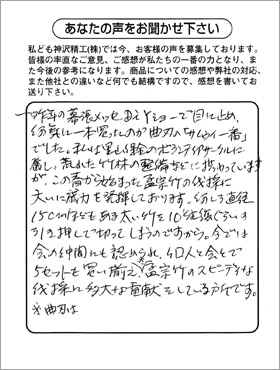 あなたの声をお聞かせ下さい
私ども神沢精工(株)では今、お客様の声を募集しております。
皆様の率直なご意見、ご感想が私たちの一番の力となり、ま
た今後の参考になります。商品についての感想や弊社の対応、
また他社との違いなど何でも結構ですので、感想を書いてお
送り下さい。
昨年の幕張メッセ ショーで目に止め、
一本買ったのが曲刃の「サムライ一番」
でした。私は里山 のボランティアサークルに
属し、荒れた竹林の整備などに携わっています
が、この春から始まった孟宗竹の伐採に
大いに威力を発揮しております。 直径
15cmほどもある太い竹を10往復ぐらいの
引き押しで切ってしまうのですから。今では
今の仲間にも認められ、 人と合せて
5セットを買い揃え、孟宗竹のスピーディな
伐採に多大な貢献をしている次第です。
※曲刃は